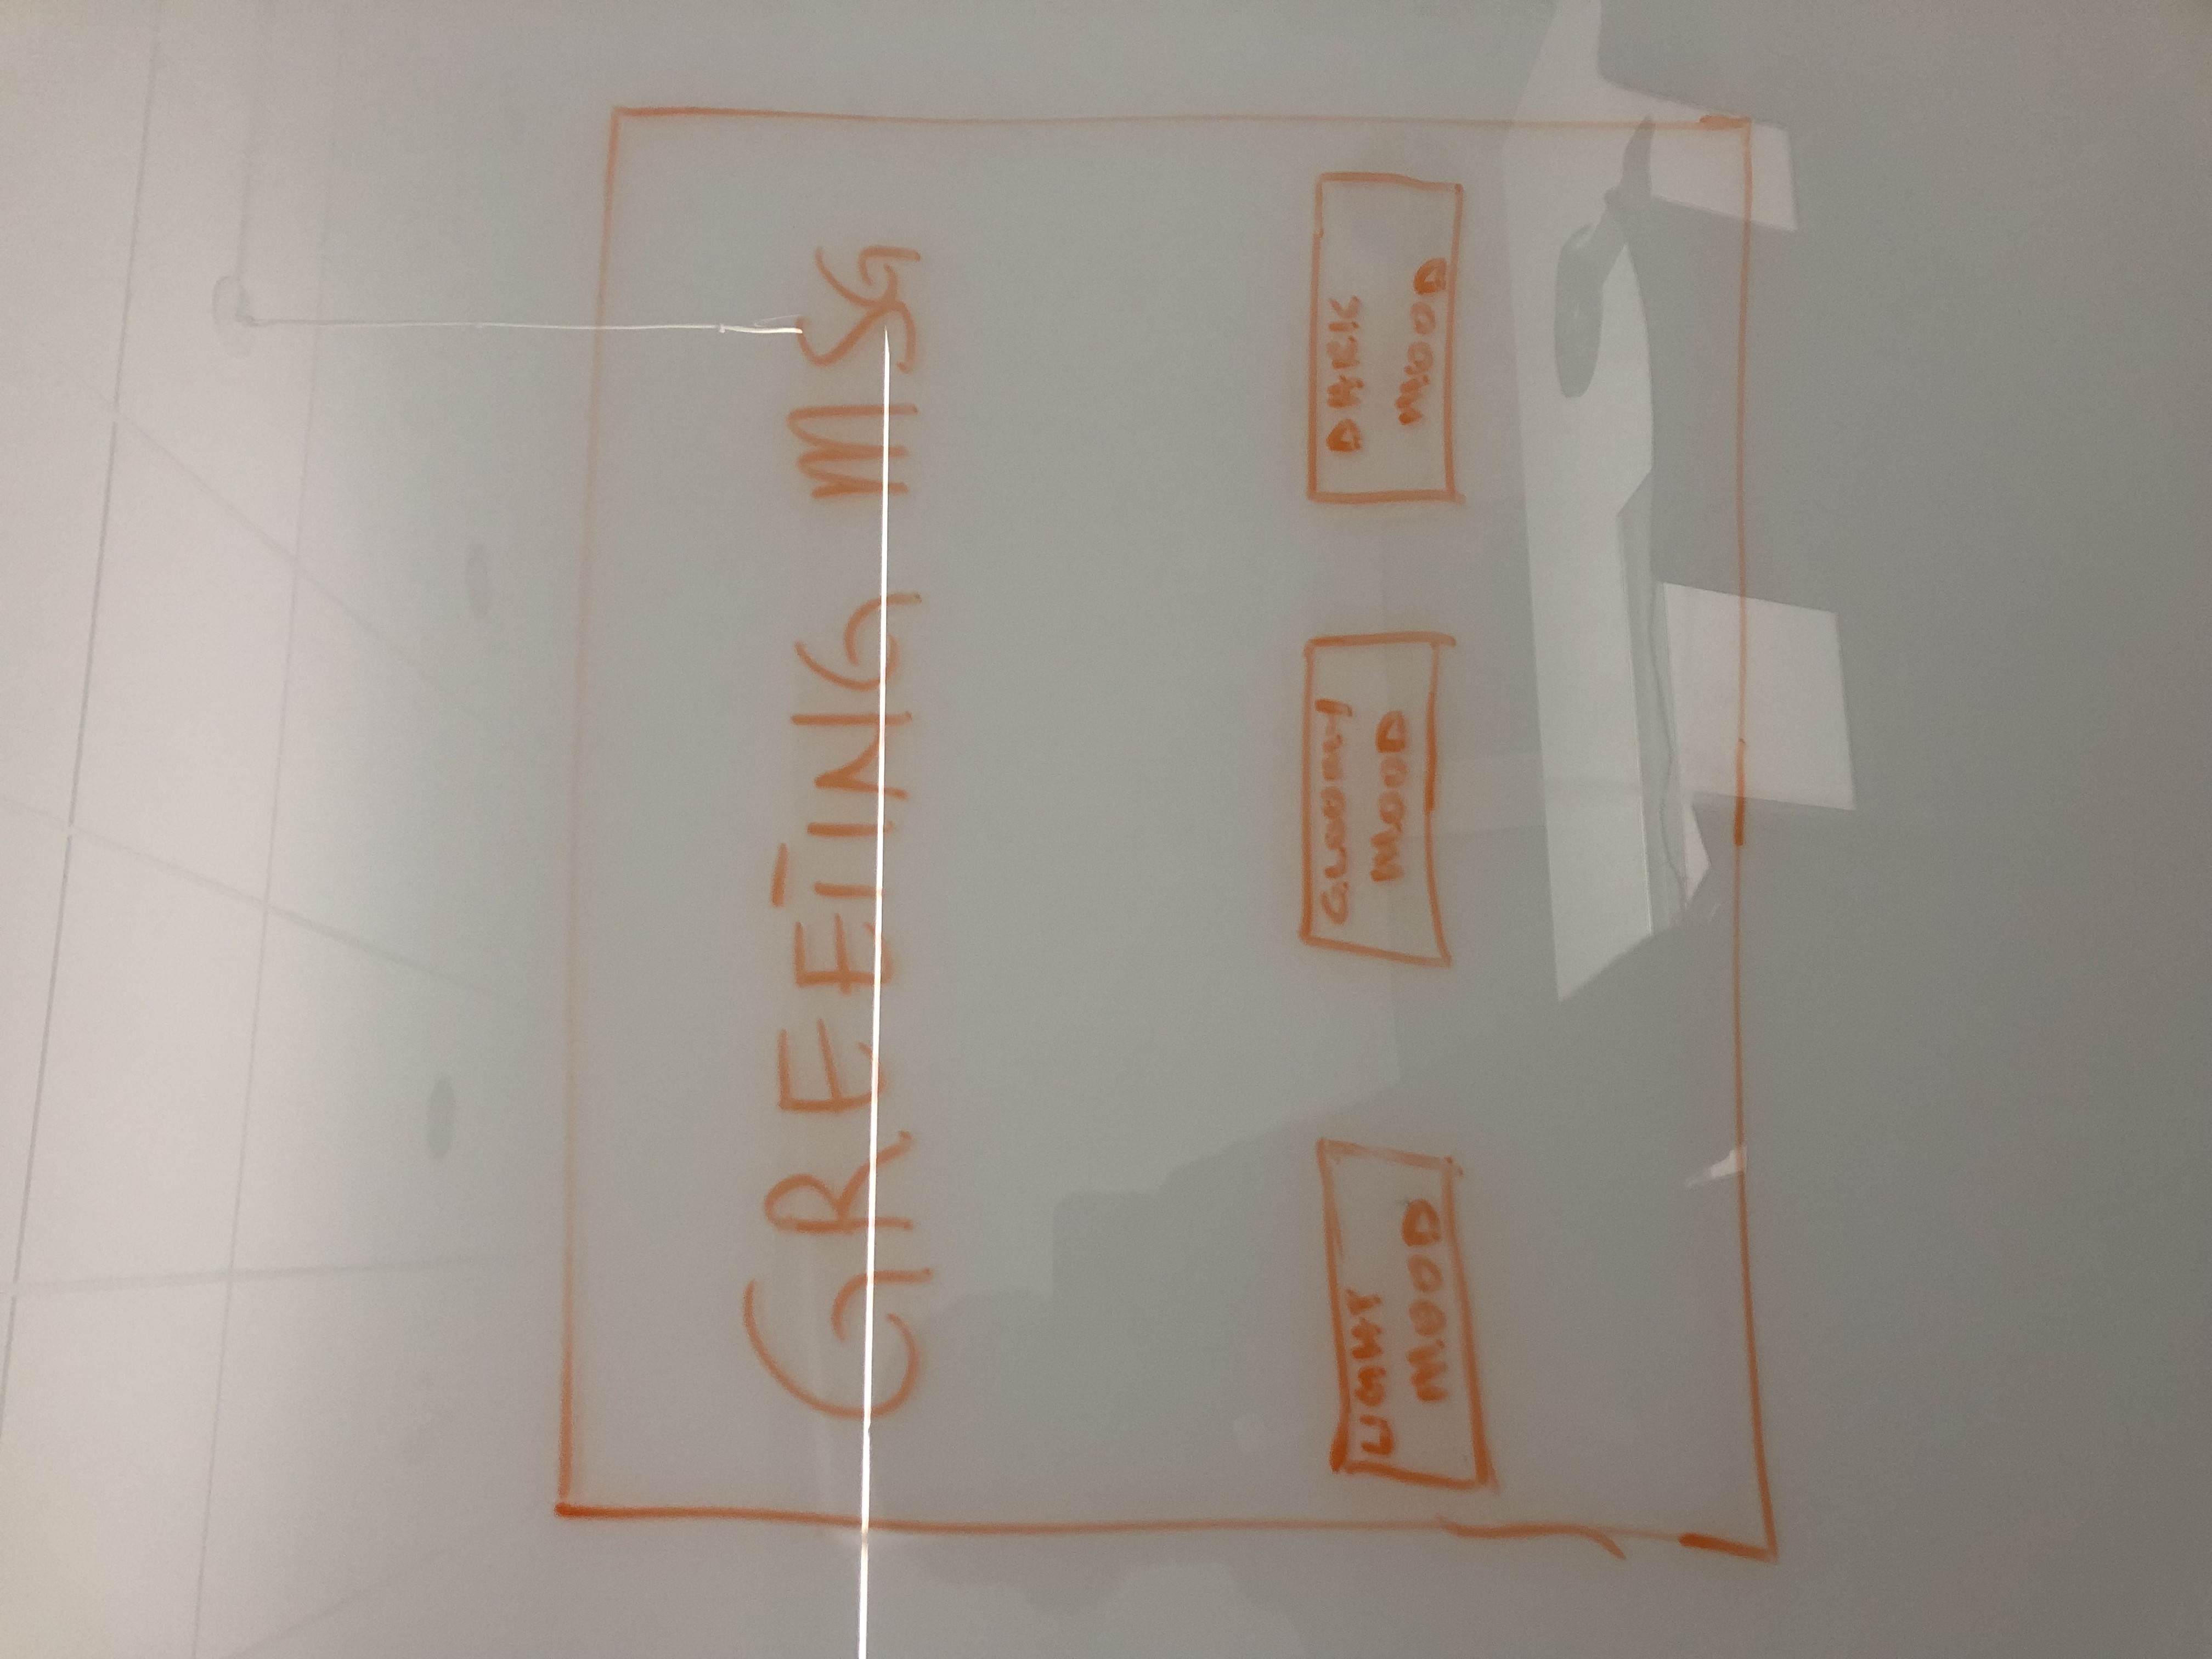 GREETING MSG
LIGHT
MOOD
GLOOMY
MOOD
DARK
MOOD